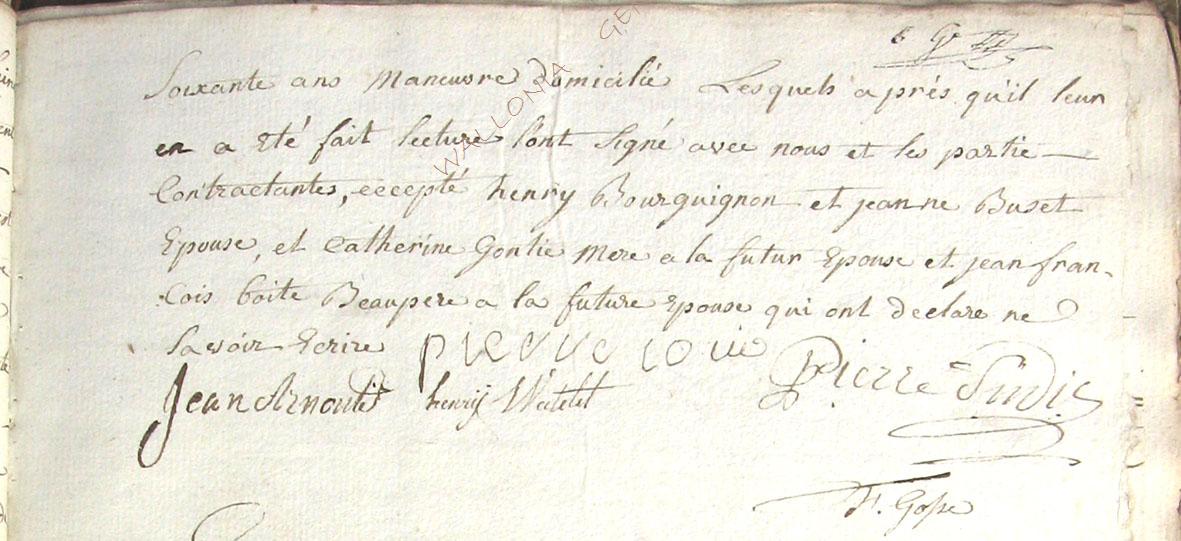 Soixante ans Maneuvre domicilié Lesquels après qu'il leur
en a Eté fait lecture l'ont Signé avec nous et les partie
Contractantes, eccepté henry Bourguignon et jeanne Buset
Epouse, et Catherine Gontie Mere a la futur Epouse et jean fran-
cois boite Beaupere a la future Epouse qui ont declare ne
Savoir Ecrire pierre
Jean henry Watelet Pierre
F. Gosse
WALLONIA GEN